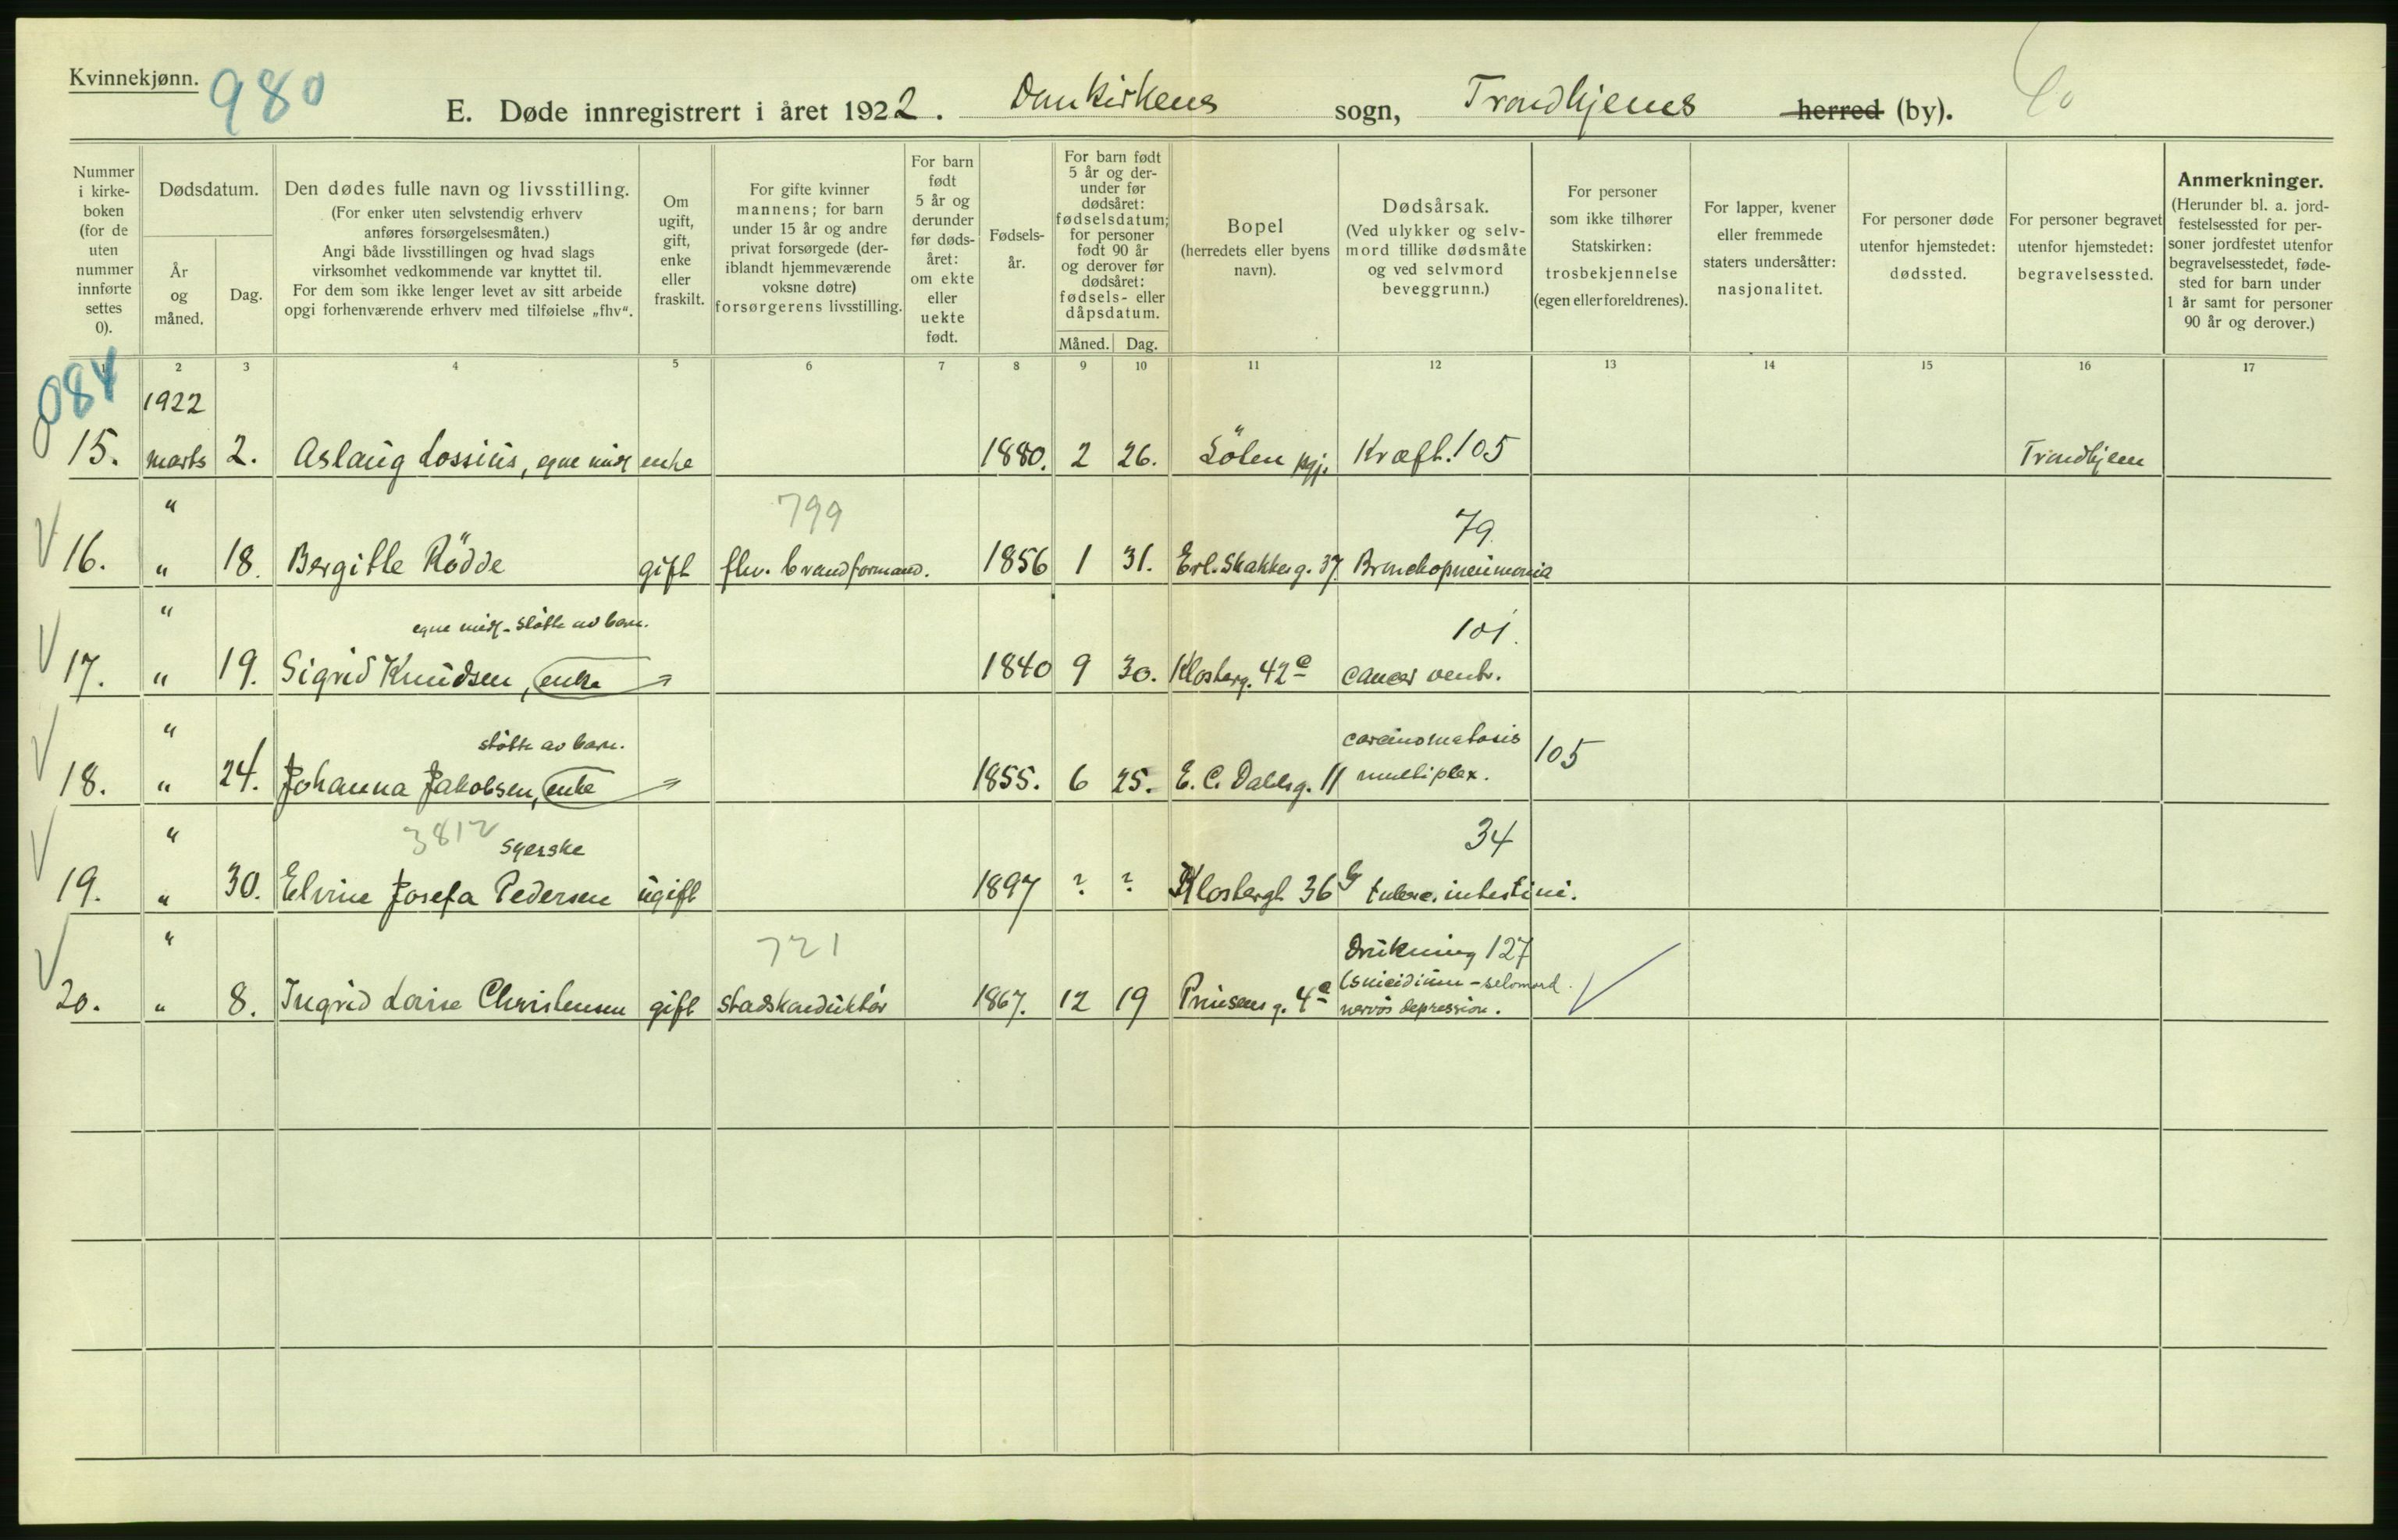 Kvinnekjønn.
980
E. Døde innregistrert i året 1922. Domkirkens sogn, Trondhjems herred (by).
Nummer i kirke-boken (for de uten nummer innførte settes 0).
Dødsdatum.
År og måned.
Dag.
Den dødes fulle navn og livsstilling.
(For enker uten selvstendig erhverv anføres forsørgelsesmåten.)
Angi både livsstillingen og hvad slags virksomhet vedkommende var knyttet til.
For dem som ikke lenger levet av sitt arbeide opgi forhenværende erhverv med tilføielse „fhv“.
Om ugift, gift, enke eller fraskilt.
For gifte kvinner mannens; for barn under 15 år og andre privat forsørgede (der-iblandt hjemmeværende voksne døtre) forsørgerens livsstilling.
For barn født 5 år og derunder før døds-året: om ekte eller uekte født.
Fødsels-år.
For barn født 5 år og der-under før dødsåret: fødselsdatum; for personer født 90 år og derover før dødsåret: fødsels- eller dåpsdatum.
Måned.
Dag.
Bopel
(herredets eller byens navn).
Dødsårsak.
(Ved ulykker og selv-mord tillike dødsmåte og ved selvmord beveggrunn.)
For personer som ikke tilhører Statskirken: trosbekjennelse (egen eller foreldrenes).
For lapper, kvener eller fremmede staters undersåtter: nasjonalitet.
For personer døde utenfor hjemstedet: dødssted.
For personer begravet utenfor hjemstedet: begravelsessted.
Anmerkninger.
(Herunder bl. a. jord-festelsessted for per-soner jordfestet utenfor begravelsesstedet, føde-sted for barn under 1 år samt for personer 90 år og derover.)
1 2 3 4 5 6 7 8 9 10 11 12 13 14 15 16 17
084
1922
15. marts 2. Aslaug Lossius, egne midl enke 1880. 2 26. Kræft. 105 Trondhjem
" 799 79.
16. " 18. Bergitte Rödde gift fhv. brandformand. 1856 1 31. Erl. Skakkesg. 37. Bronchopneumonia
" egne midl - stötte av barn. 101.
17. " 19. Sigrid Knudsen, enke 1840 9 30. Klosterg. 42c cancer ventr.
" stötte av barn. carcinomatosis 105
18. " 24. Johanna Jakobsen, enke 1855. 6 25. E. C. Dahlsg. 11 multiplex.
" 3812 syerske 34
19. " 30. Elvine Josefa Pedersen ugift 1897 ? ? Klostergt 36b tuberc. intestini.
" 721 Drukning 127
(suicidium - selvmord.
20. " 8. Ingrid Lovise Christensen gift stadskonduktör 1867. 12 19 Prinsensg. 4c nervös depression.